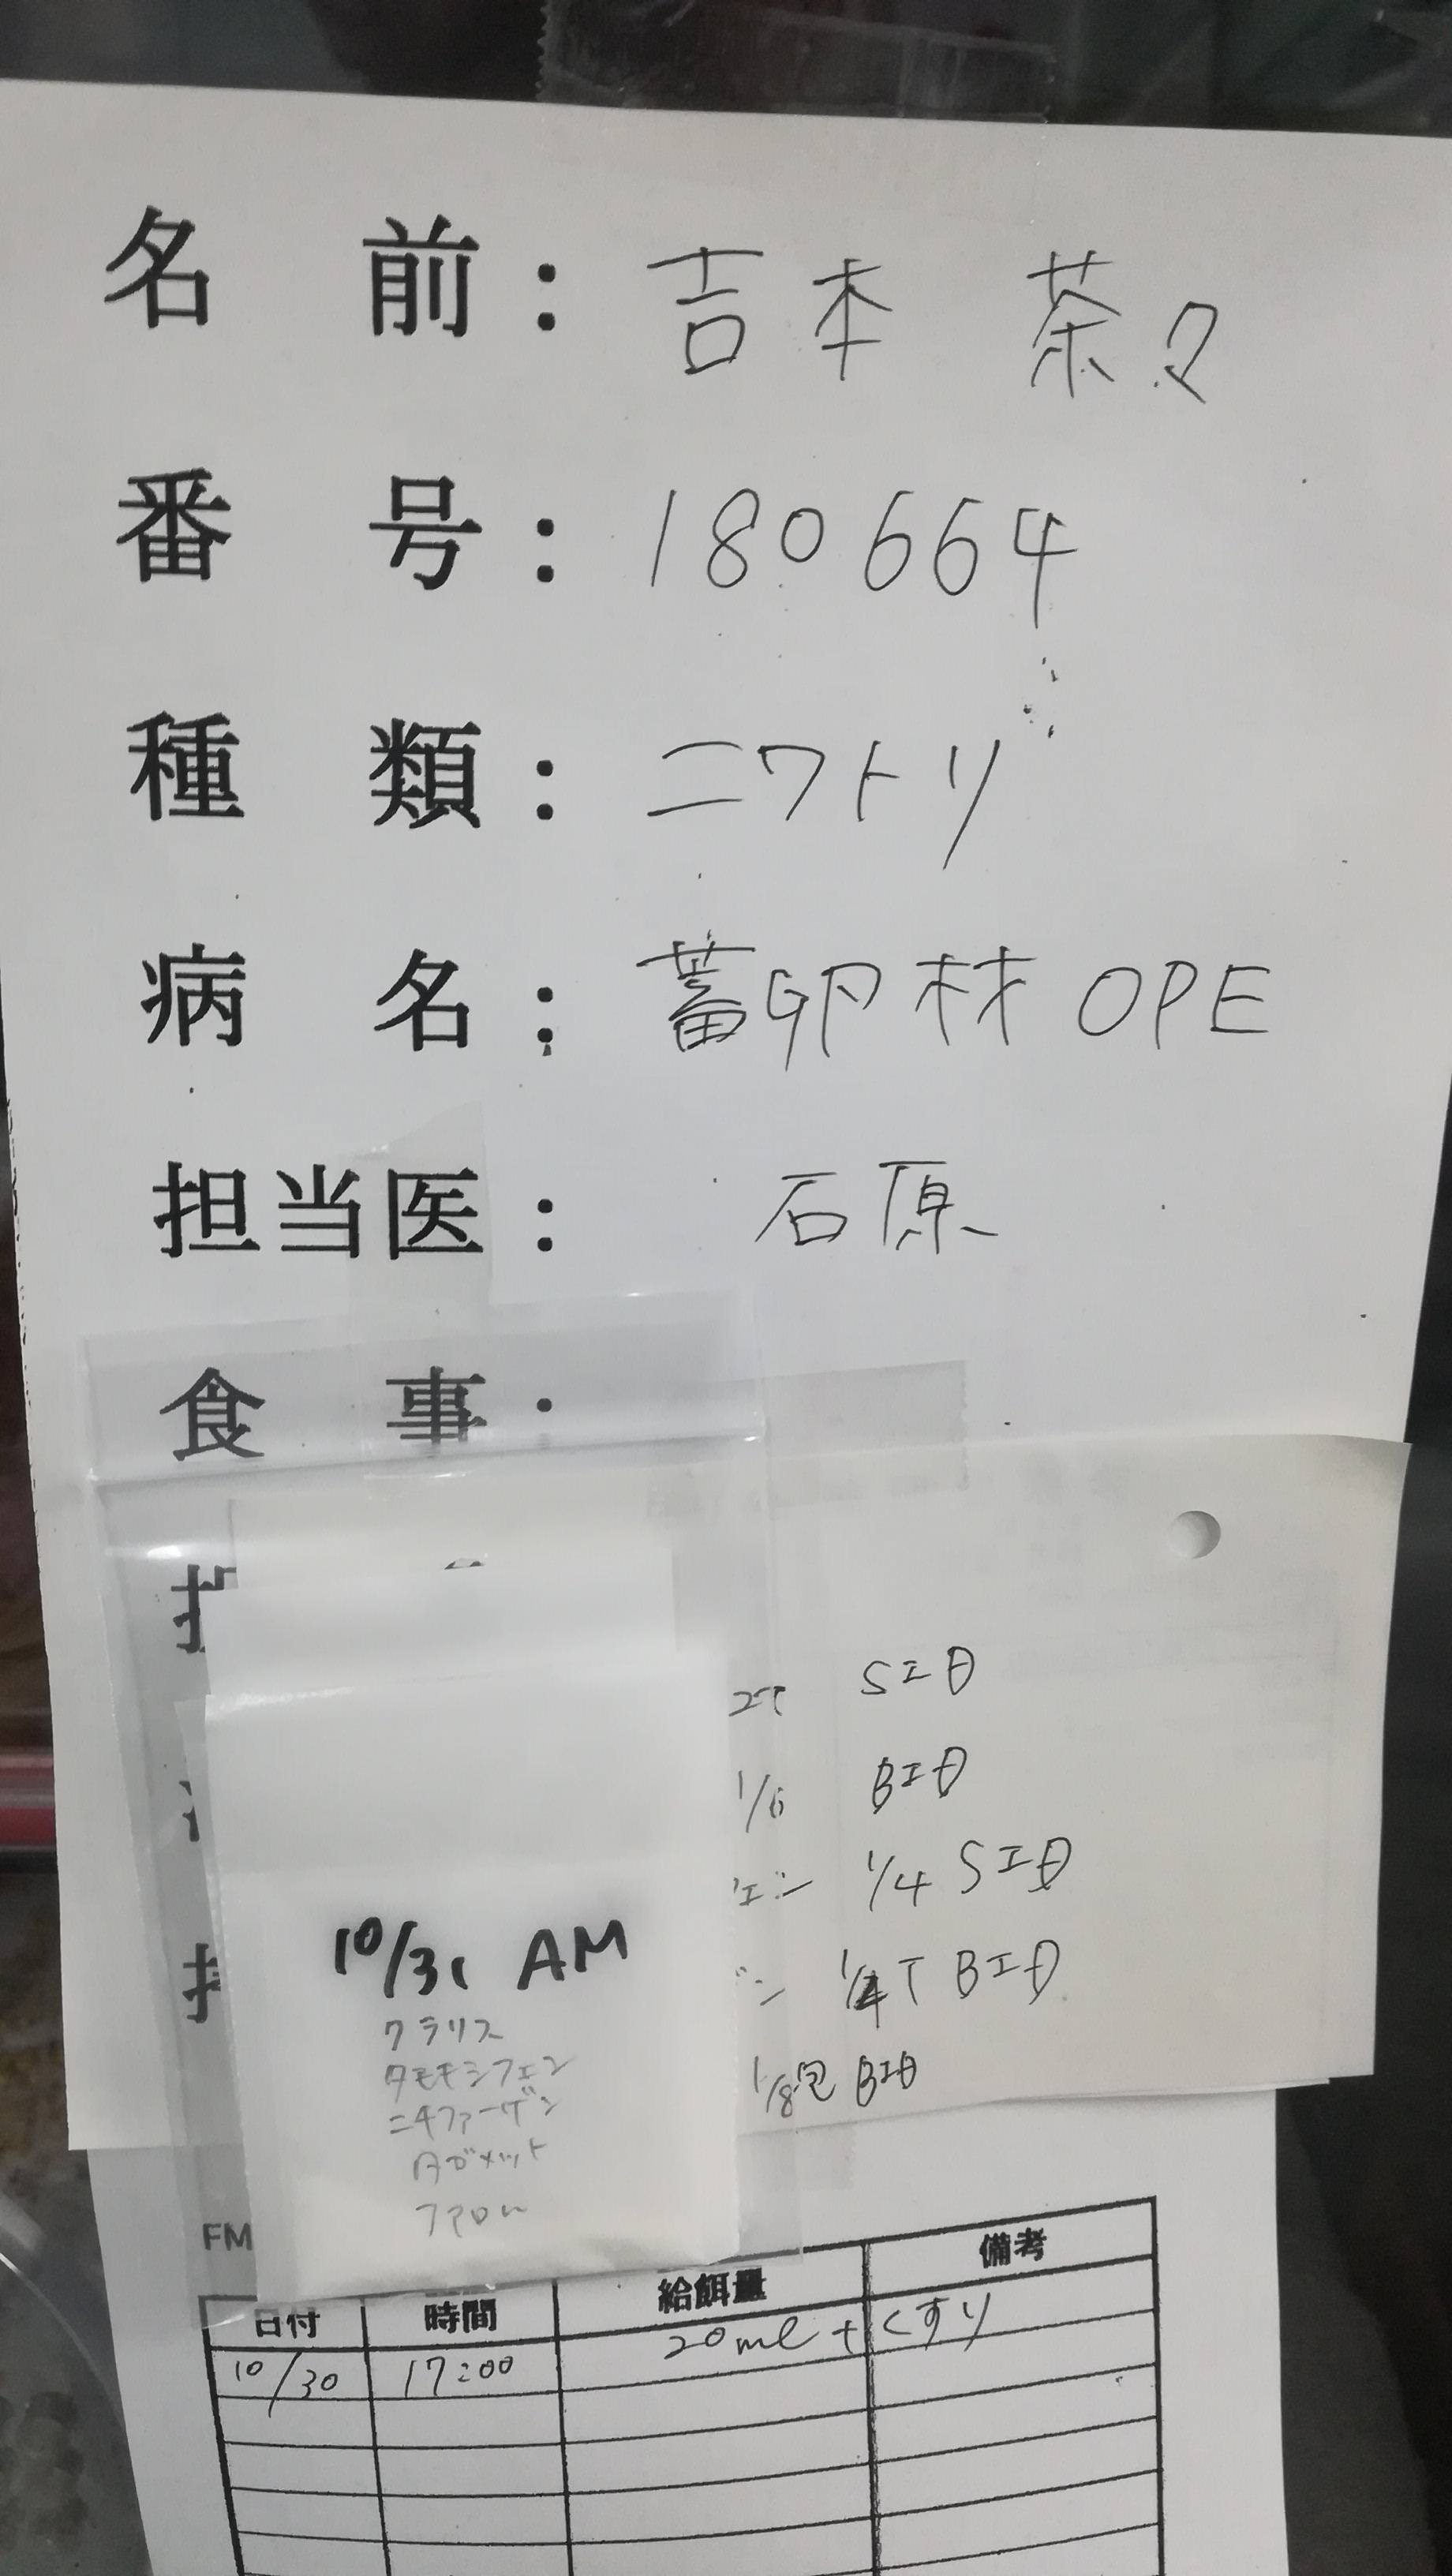 名前：吉本 茶々
番号：180664
種類：ニワトリ
病名：蓄卵材 OPE
担当医：石原
食事：
SID
1/6 BID
ェン 1/4 SID
ン 1/4T BID
1/8包 BID
10/31 AM
クラリス
タモキシフェン
ニチファーゲン
タガメット
ファロム
FM
日付 時間 給餌量 備考
10/30 17:00 20ml + くすり